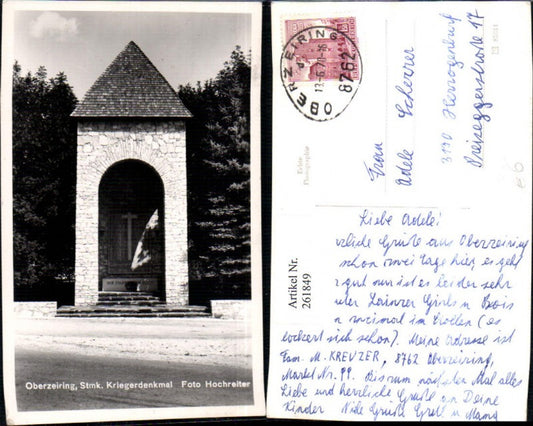 Oberzeiring, Stmk. Kriegerdenkmal Foto Hochreiter
OBERZEIRING
8762
Echte
Photographie
Frau
Adele Scheirer
3130 Herzogenburg
Roseggerstraße 17
Artikel Nr.
261849
Liebe Adele!
Grüße aus Oberzeiring
schon zwei Tage hier, es geht
gut nur ist es leider sehr
einmal im Boden (es
lockert sich schon). Meine Adresse ist
Fam. M. KREUZER, 8762 Oberzeiring,
Markt Nr. 99. Bis zum nächsten Mal alles
Liebe und herzliche Grüße an Deine
Kinder Viele Grüße Gretl u Mama